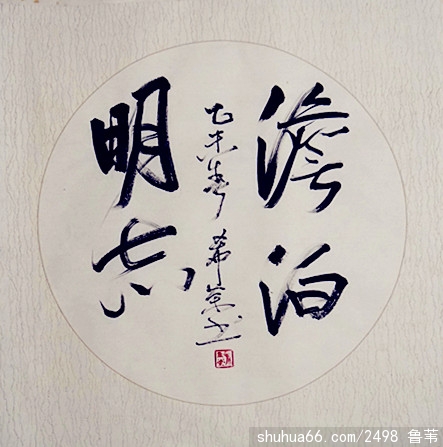 澹泊
明志
乙未 书
shuhua66.com/2498 鲁苇